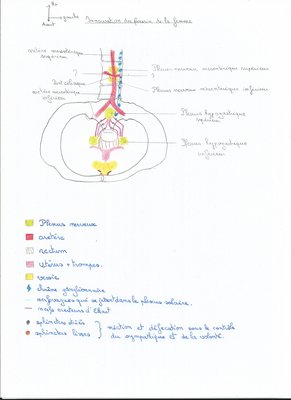 Ht
gauche
Avant
Innervation du bassin de la femme
artère mésentérique
supérieure
?
artère mésentérique
inférieure
Plexus nerveux mésentérique supérieur
?
Plexus nerveux mésentérique inférieur
Plexus hypogastrique
supérieur
Plexus hypogastrique
inférieur
Plexus nerveux
artère
rectum
utérus + trompes.
vessie
chaîne ganglionnaire
qui se jettent dans le plexus solaire.
nerfs érecteurs d'Eckart
sphincters striés
sphincters lisses
miction et défécation sous le contrôle
du sympathique et de la volonté.